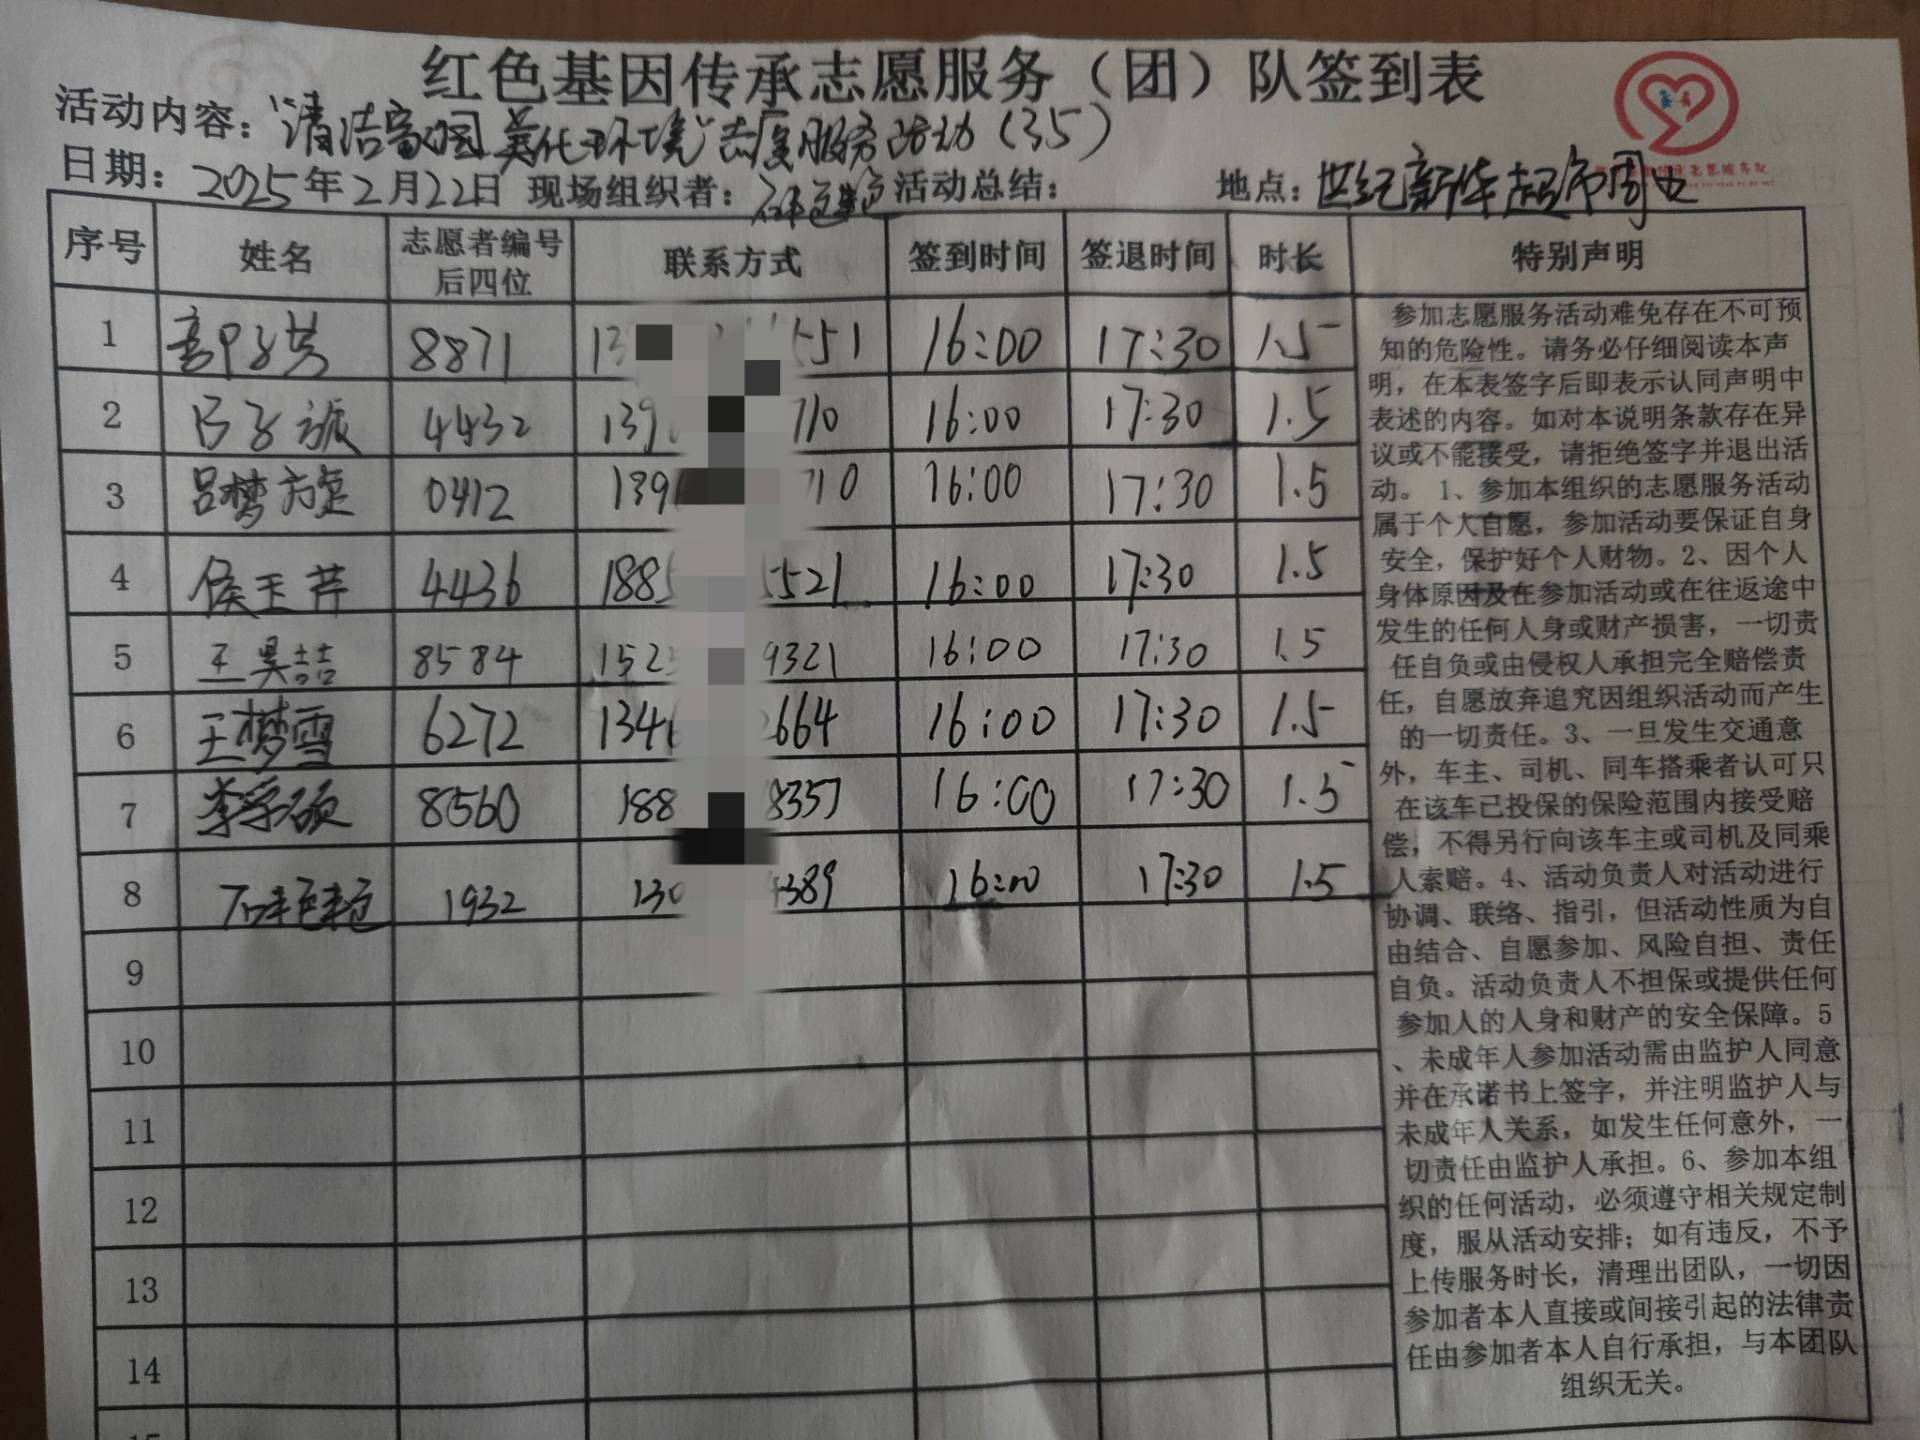 红色基因传承志愿服务（团）队签到表
活动内容：“清洁家园 美化环境”志愿服务活动（35）
日期：2025年2月22日 现场组织者： 活动总结： 地点：世纪新华超市周边
序号 姓名 志愿者编号后四位 联系方式 签到时间 签退时间 时长 特别声明
1 8871 13 551 16:00 17:30 1.5
2 4432 139 710 16:00 17:30 1.5
3 吕梦 0412 139 710 16:00 17:30 1.5
4 侯玉芹 4436 188 521 16:00 17:30 1.5
5 王昊喆 8584 152 9321 16:00 17:30 1.5
6 王梦雪 6272 134 664 16:00 17:30 1.5
7 李学硕 8560 188 8357 16:00 17:30 1.5
8 1932 130 4389 16:00 17:30 1.5
9
10
11
12
13
14
15
参加志愿服务活动难免存在不可预
知的危险性。请务必仔细阅读本声
明，在本表签字后即表示认同声明中
表述的内容。如对本说明条款存在异
议或不能接受，请拒绝签字并退出活
动。 1、参加本组织的志愿服务活动
属于个人自愿，参加活动要保证自身
安全，保护好个人财物。2、因个人
身体原因及在参加活动或在往返途中
发生的任何人身或财产损害，一切责
任自负或由侵权人承担完全赔偿责
任，自愿放弃追究因组织活动而产生
的一切责任。3、一旦发生交通意
外，车主、司机、同车搭乘者认可只
在该车已投保的保险范围内接受赔
偿；不得另行向该车主或司机及同乘
人索赔。4、活动负责人对活动进行
协调、联络、指引，但活动性质为自
由结合、自愿参加、风险自担、责任
自负。活动负责人不担保或提供任何
参加人的人身和财产的安全保障。5
、未成年人参加活动需由监护人同意
并在承诺书上签字，并注明监护人与
未成年人关系，如发生任何意外，一
切责任由监护人承担。6、参加本组
织的任何活动，必须遵守相关规定制
度，服从活动安排；如有违反，不予
上传服务时长，清理出团队，一切因
参加者本人直接或间接引起的法律责
任由参加者本人自行承担，与本团队
组织无关。